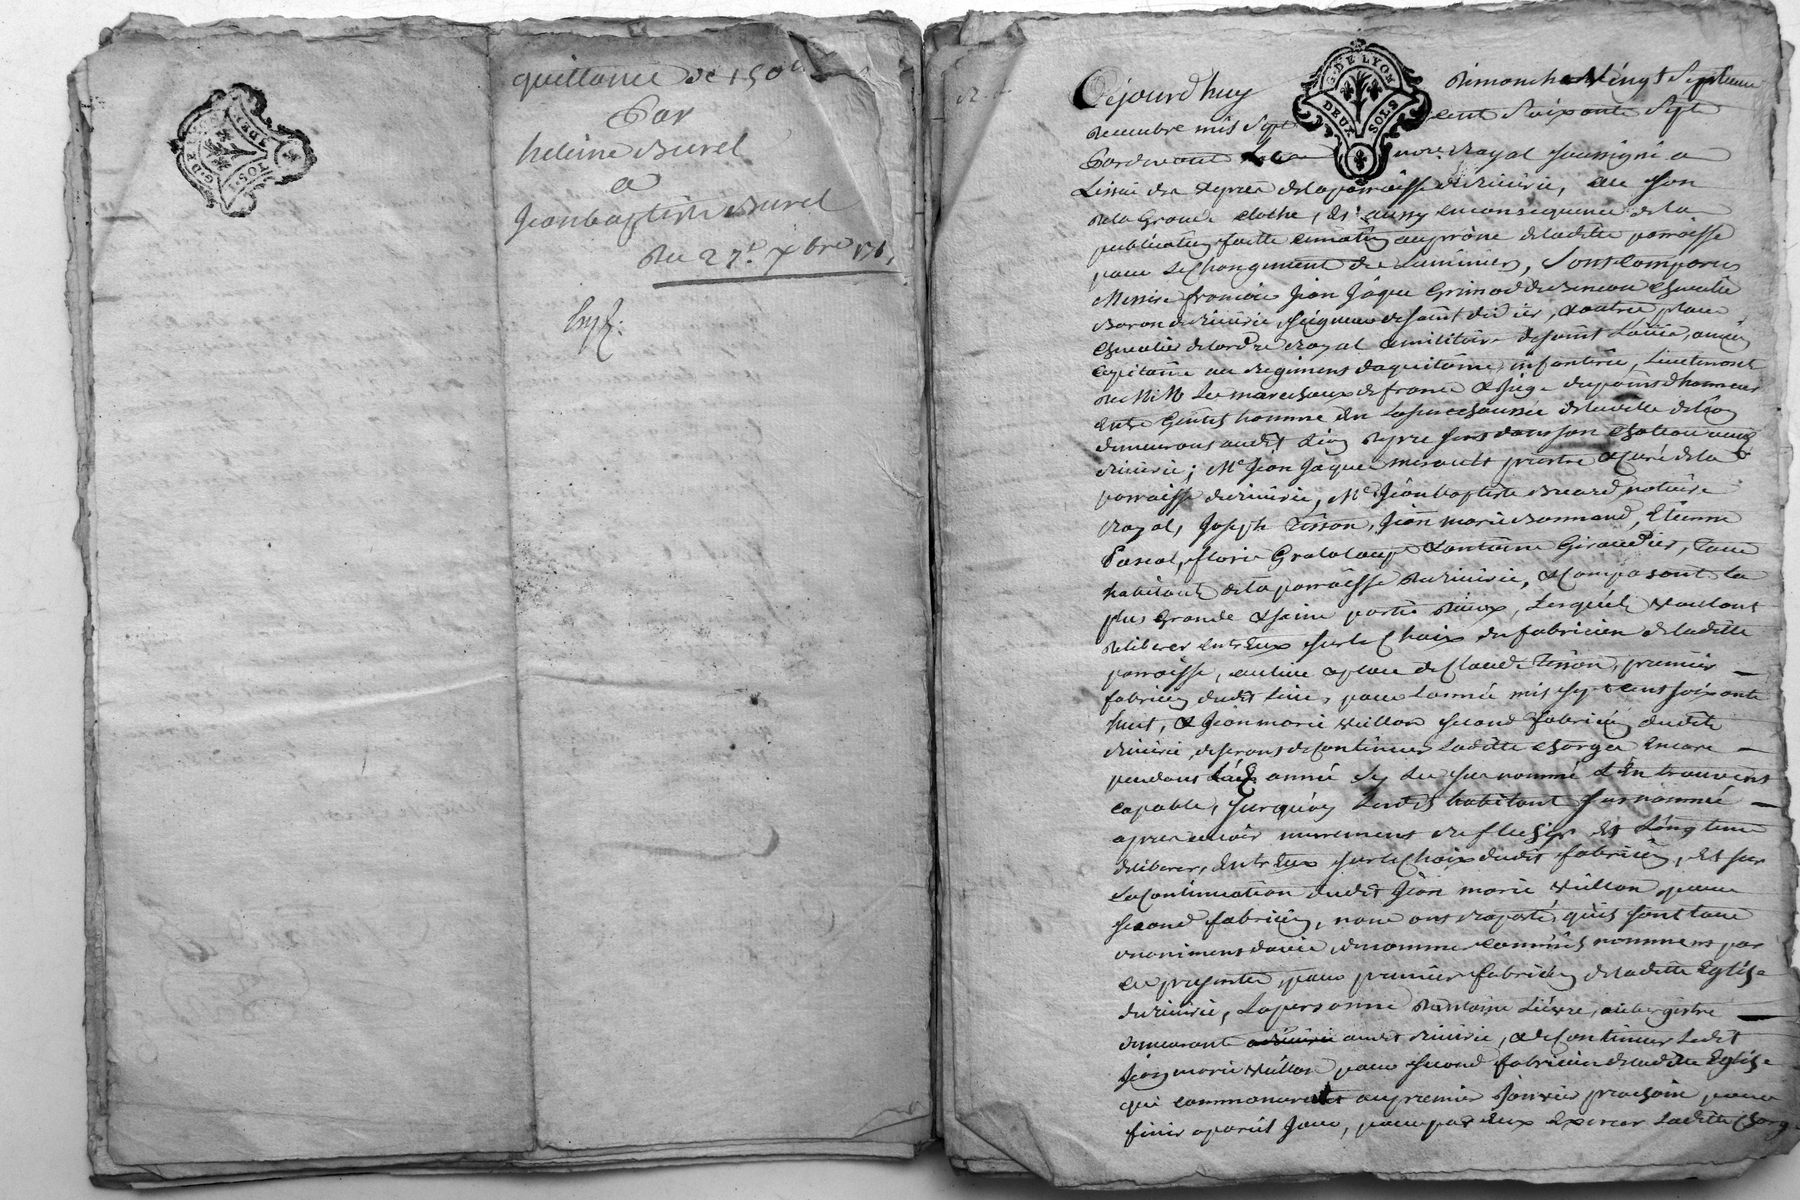 quittance de 150 lt
Par
heleine Burel
a
Jean baptiste Burel
Du 27e xbre 176
G. DE LYON
DEUX SOLS
Ojourdhuy Dimanche Vingt Septieme
decembre mil Sept cent Soixante Sept
Pardevant Le nore. Royal soussigné a
Lissue des Vepres de la parroisse de Riverie, au son
de la Grande cloche, et aussy en consequence de la
publication faitte ce matin au prone de laditte parroisse
pour Le Changement des Luminiers, Sont comparus
Messire francois Jean Jaque Grimod de Beneon Chevalier
Baron de Riverie, seigneur de saint didier, & autres places
Chevalier de lordre Royal & militaire de saint Louis, ancien
Capitaine au Regiment daquitaine infanterie, Lieutenant
de MM Les marechaux de france & Juge du point dhonneur
Entre Gentils homme en La senechaussée de la ville de Lyon
demeurant audit Lyon de present dans son chateau audit
Riverie; Me Jean Jaque prestre & Curé de la
parroisse de Riverie, Me Jean baptiste notaire
Royal, Joseph Tisson, Jean marie Bonnand, Etienne
Pascal, fleurie Grataloup & antoine Giraudier, tous
habitants de la parroisse de Riverie, & Composants la
plus Grande & saine partie diceux, Lesquels voulant
deliberer entr Eux sur le Choix du fabricien de laditte
parroisse, au lieu & place de Claude Tisson, premier
fabricien dudit lieu, pour Lannée mil sept cent soixante
huit, & Jean marie Vuillon second fabricien dudit
Riverie, de continuer laditte charge Encore
pendant année sy Les sus nommé L'En trouvent
capable, surquoy Lesdits habitant sus nommé
apres avoir murement reflechis et Longtems
deliberer, Entr Eux sur le Choix dudit fabricien, et sur
La Continuation dudit Jean marie Vuillon pour
second fabricien, nous ont raporté, quils sont tous
unanimement davis de nommer comme ils nomment par
ces presentes, pour premier fabricien de laditte Eglise
de Riverie, La personne dantoine Lievre, aubergiste
demeurant audit Riverie, & de Continuer Ledit
Jean marie Vuillon pour second fabricien de laditte Eglise
qui commencerat au premier Janvier prochain pour
finir a pareil Jour, pour par Eux Exercer Laditte Charge